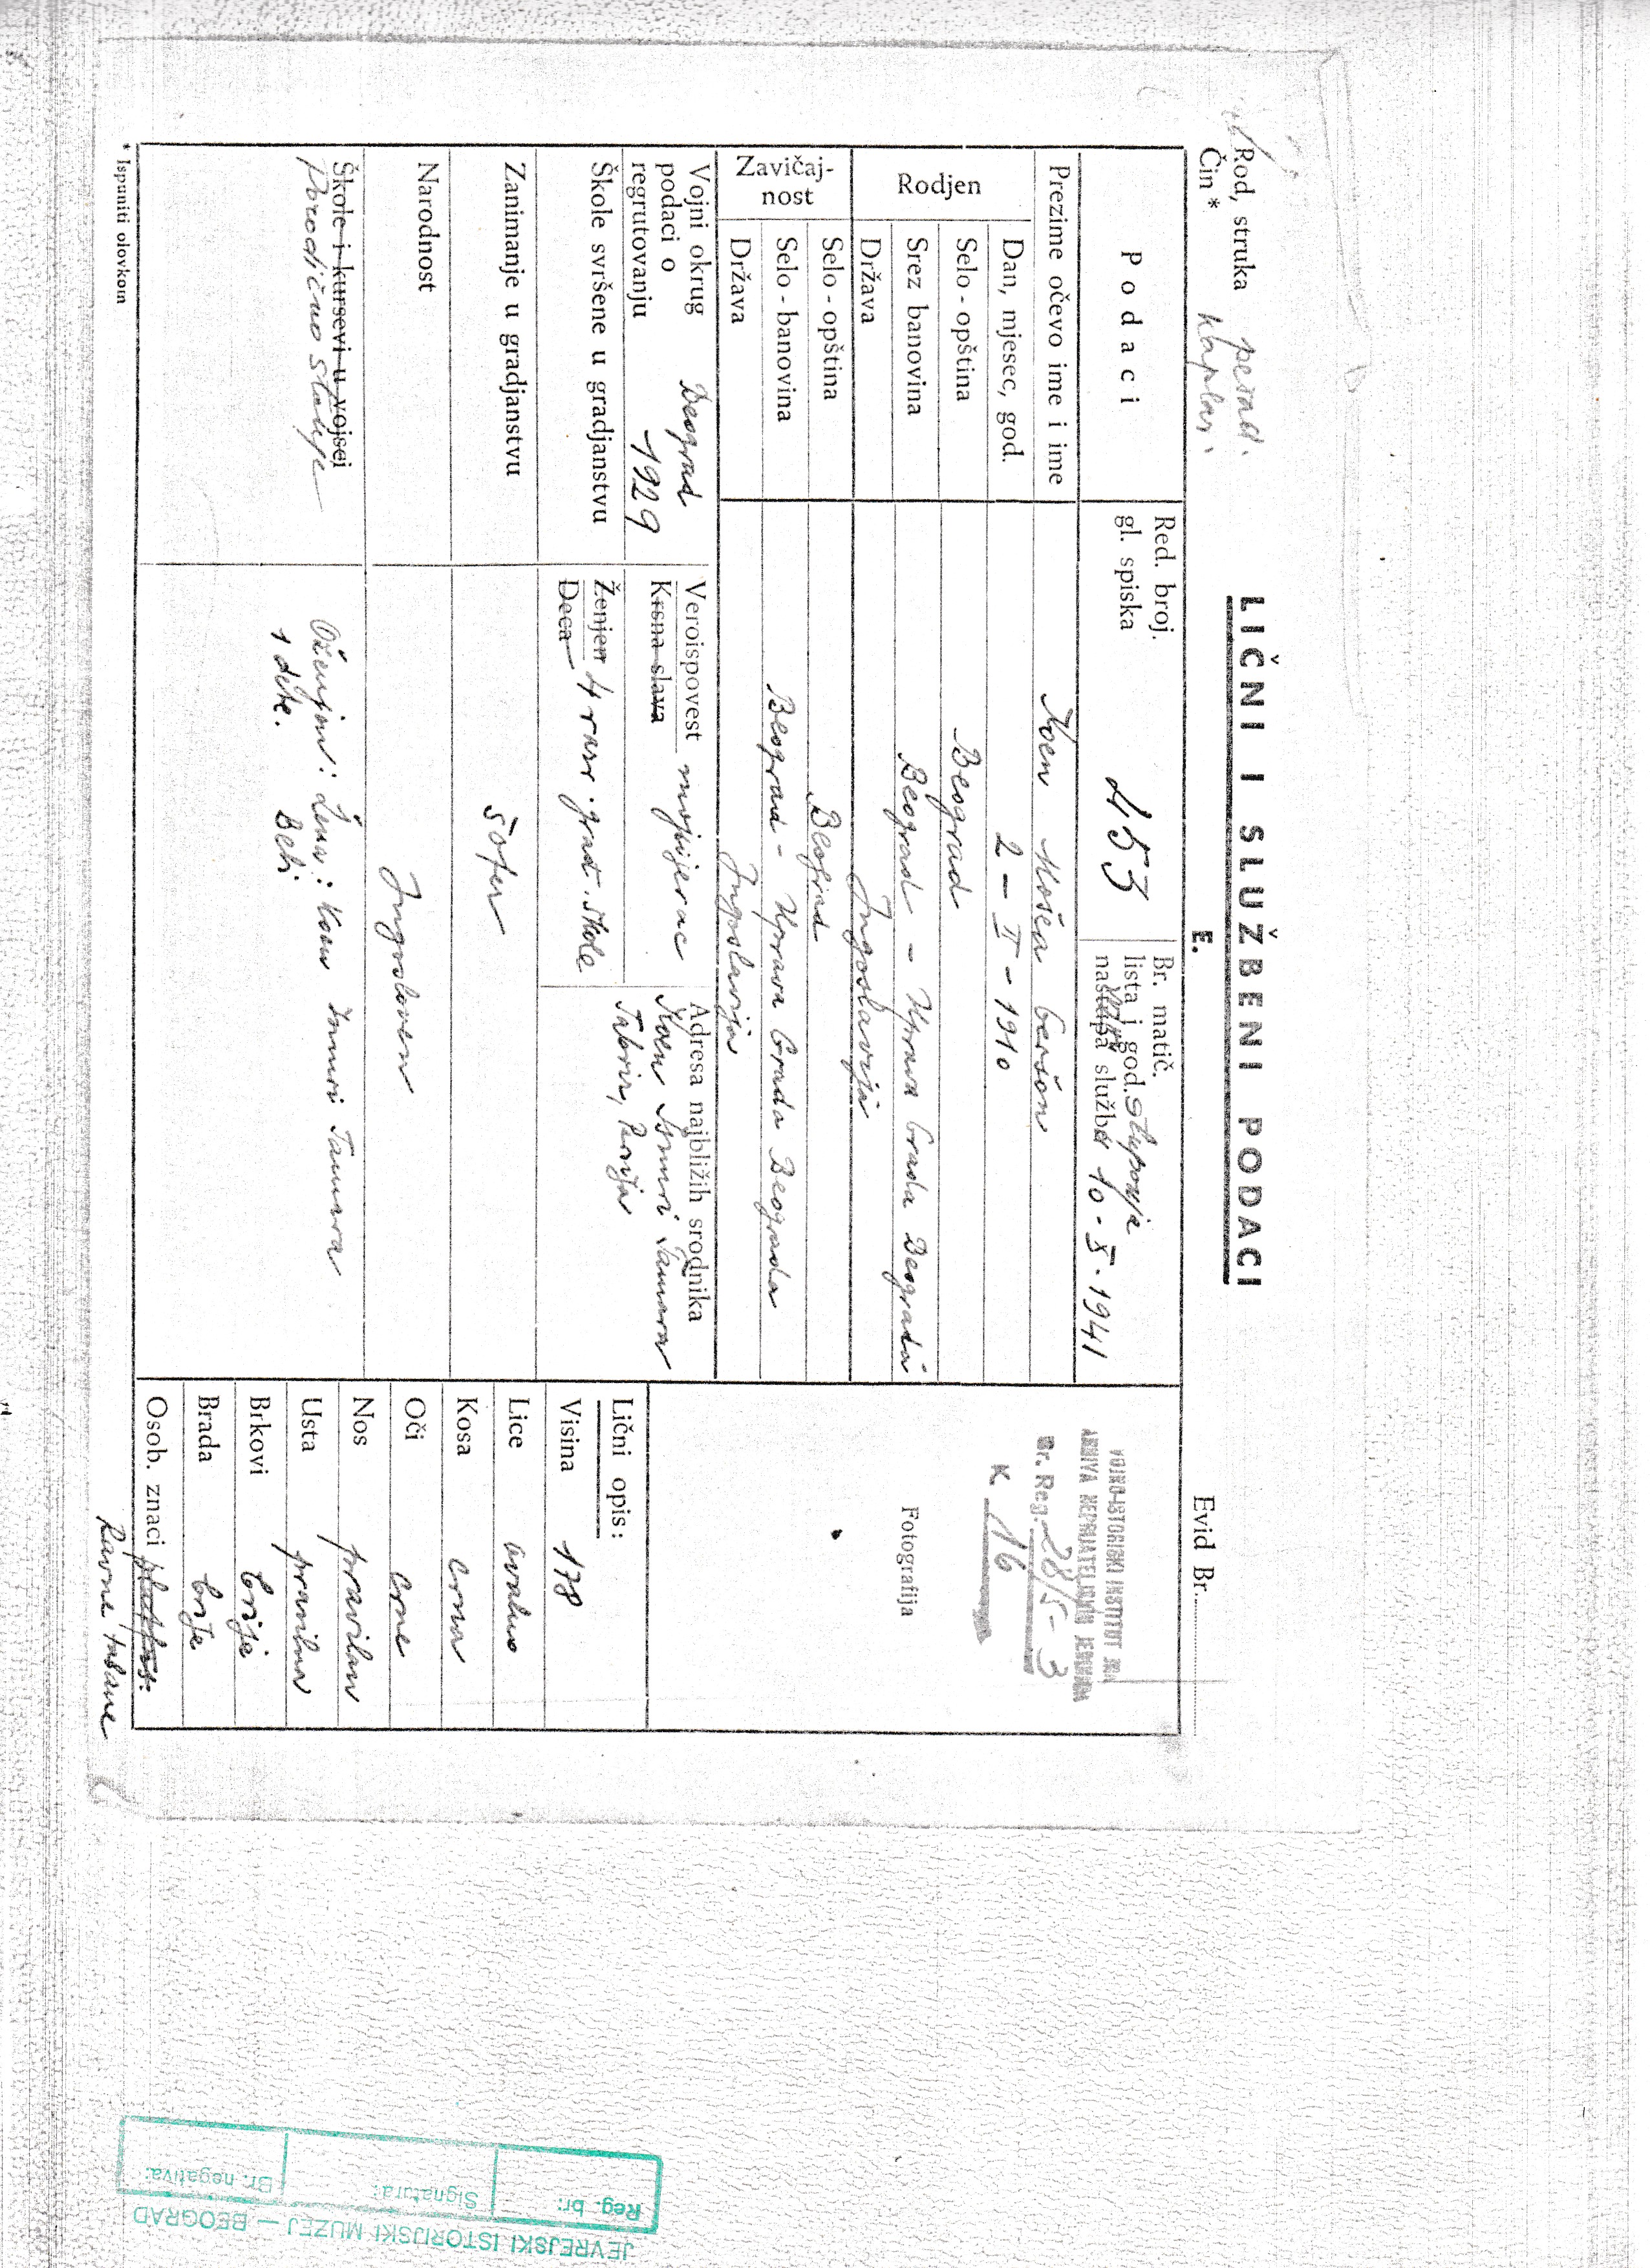 LIČNI I SLUŽBENI PODACI
E.
Evid Br.
Rod, struka pešad.
Čin * Kaplar.
Podaci
Red. broj.
gl. spiska
453
Br. matič.
lista i god. stupanja
nastupa službe 10-5-1941
Prezime očevo ime i ime Koen Moše Geršon
Rodjen
Dan, mjesec, god. 2 - II - 1910
Selo - opština Beograd
Srez banovina Beograd - Uprava Grada Beograda
Država Jugoslavija
Zavičaj-
nost
Selo - opština Beograd
Selo - banovina Beograd - Uprava Grada Beograda
Država Jugoslavija
Vojni okrug Beograd
podaci o
regrutovanju 1929
Veroispovest mojsijevac
Krsna slava
Adresa najbližih srodnika
Koen Tamara
Škole svršene u gradjanstvu
Ženjen 4 razr. grad. škole
Deca
Zanimanje u gradjanstvu šofer
Narodnost Jugosloven
Škole i kursevi u vojsci
Porodično stanje
Oženjen: Žena: Koen Tamara
1 dete. Beti
* Ispuniti olovkom
VOJNO-ISTORISKI INSTITUT JNA
ARHIVA NEPRIJATELJSKIH JEDINICA
Br. Reg. 28/5-3
K. 16
Fotografija
Lični opis:
Visina 178
Lice ovalno
Kosa crna
Oči crne
Nos pravilan
Usta pravilna
Brkovi brije
Brada brije
Osob. znaci
JEVREJSKI ISTORIJSKI MUZEJ — BEOGRAD
Reg. br:
Signatura:
Br. negativa: